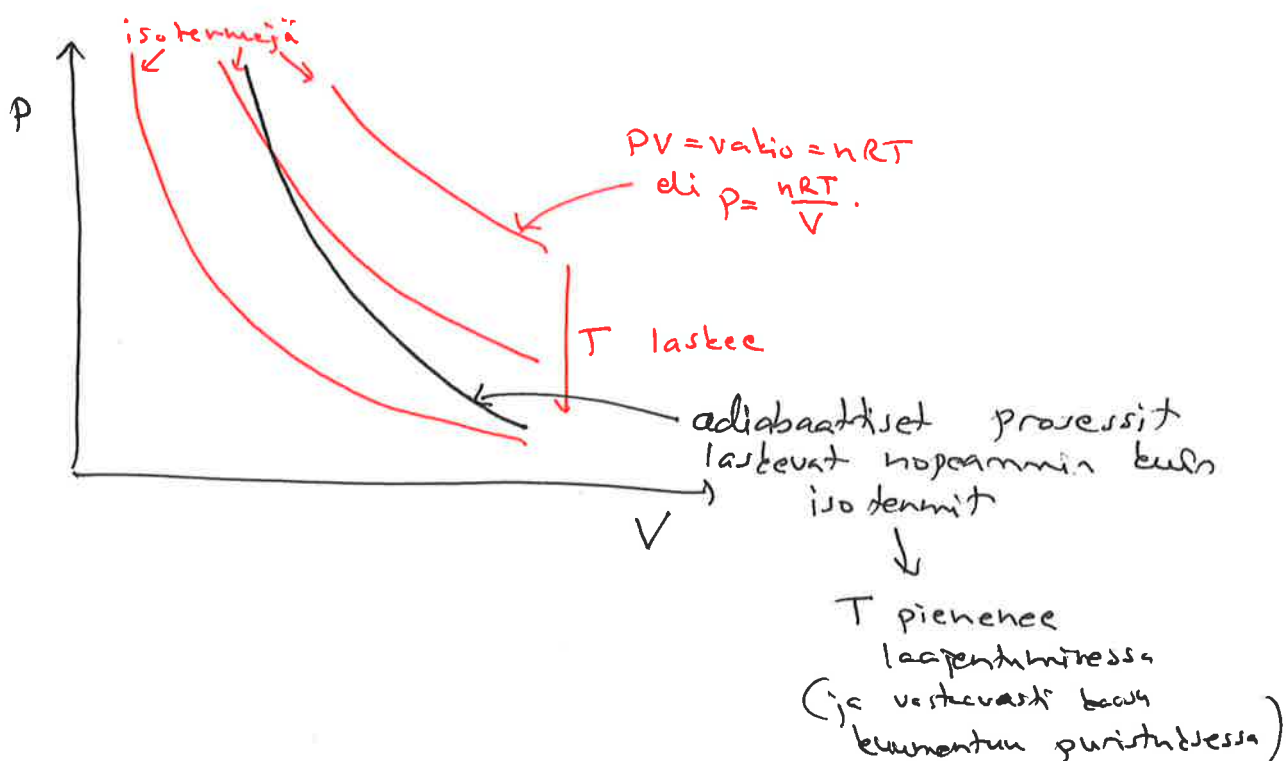 isotermejä
P
PV = vakio = nRT
eli P = nRT/V.
T laskee
adiabaattiset prosessit
laskevat nopeammin kuin
isotermit
V
↓
T pienenee
laajentumisessa
(ja vastaavasti kaasu
kuumentuu puristuksessa)